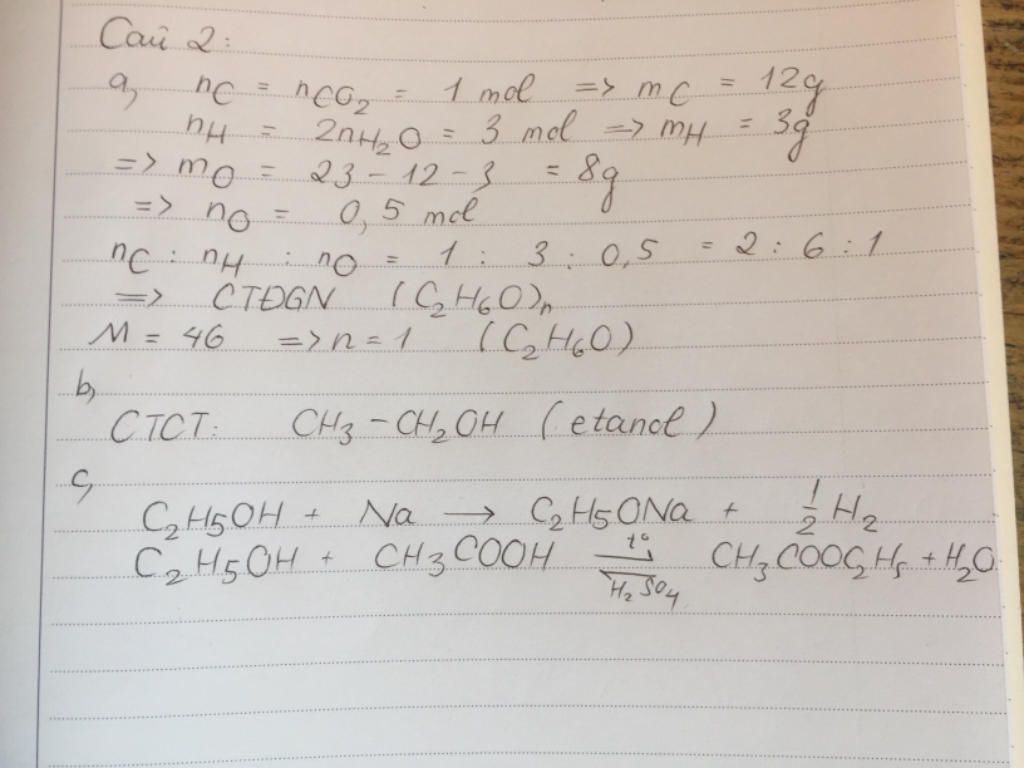 Câu 2:
a, nC = nCO2 = 1 mol => mC = 12g
nH = 2nH2O = 3 mol => mH = 3g
=> mO = 23 - 12 - 3 = 8g
=> nO = 0,5 mol
nC : nH : nO = 1 : 3 : 0,5 = 2 : 6 : 1
=> CTĐGN (C2H6O)n
M = 46 => n = 1 (C2H6O)
b,
CTCT: CH3 - CH2OH (etanol)
c,
C2H5OH + Na → C2H5ONa + 1/2 H2
C2H5OH + CH3COOH ⇌ (t°, H2SO4) CH3COOC2H5 + H2O